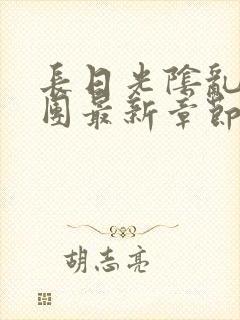 長日光陰亂
團最新章節
胡志亮